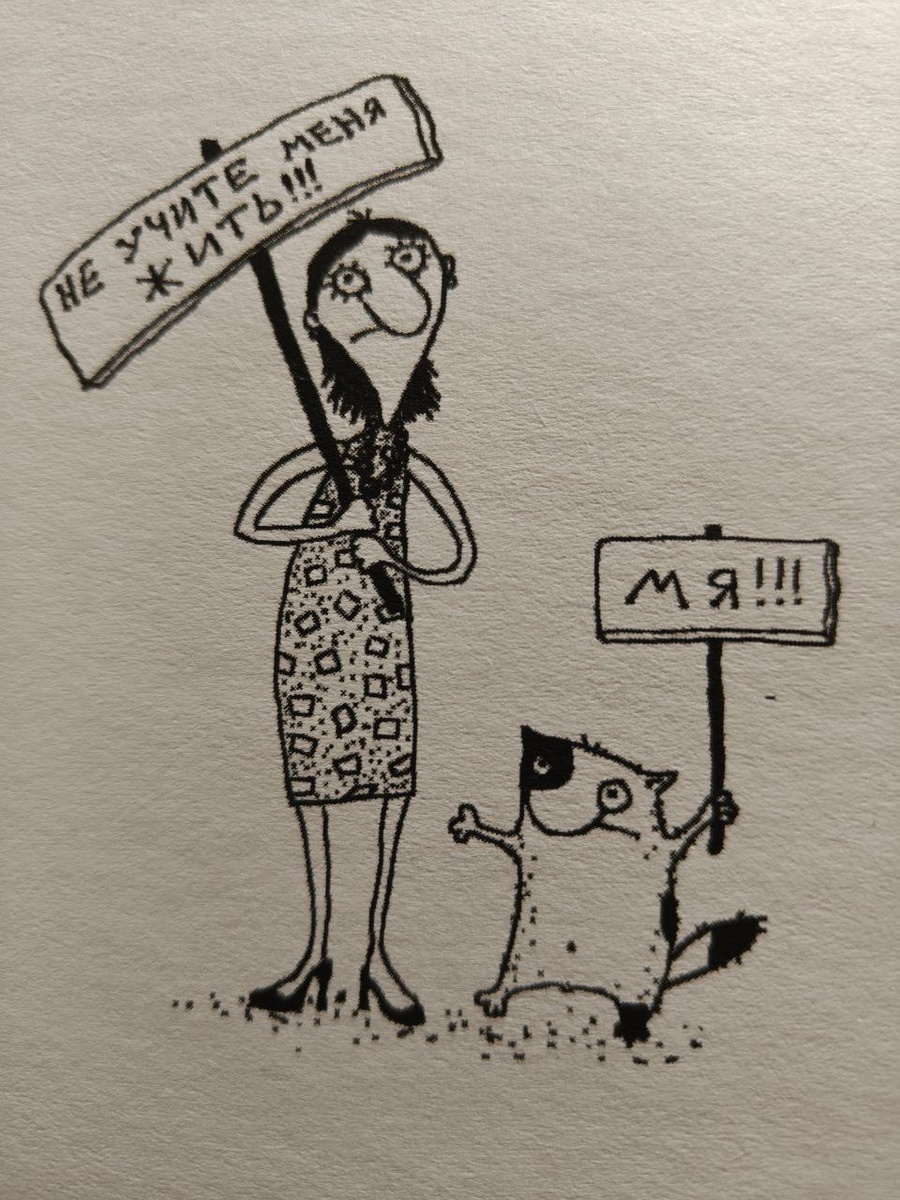 НЕ УЧИТЕ МЕНЯ
ЖИТЬ!!!
МЯ!!!